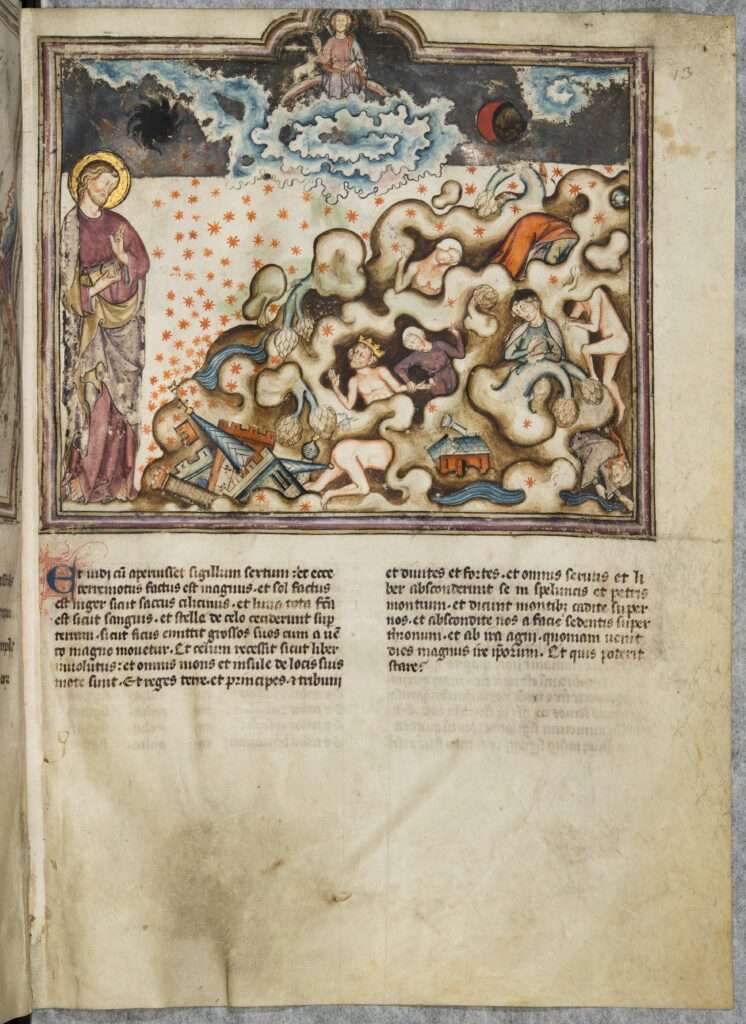 13
Et uidi cu̅ aperuisset sigillum sextum: et ecce
terremotus factus est magnus. et sol factus
est niger sicut saccus cilicinus. et luna tota
est sicut sanguis. et stelle de celo ceciderunt sup̅
terram. sicut ficus emittit grossos suos cum a ue̅
to magno mouetur. Et celum recessit sicut liber
inuolutus: et omnis mons et insule de locis suis
mote sunt. Et reges terre. et principes. et tribuni
et diuites et fortes. et omnis seruus et li
ber absconderunt se in speluncis et petris
montium. et dicunt montib; cadite super
nos. et abscondite nos a facie sedentis super
thronum. et ab ira agni. quoniam uenit
dies magnus ire ip̅orum. Et quis poterit
stare?